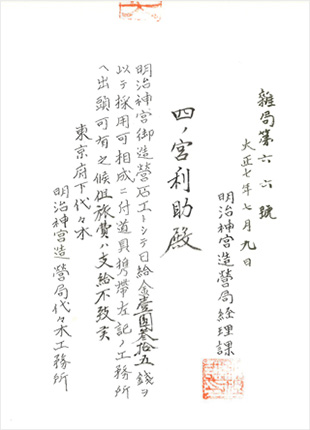 雜局第六六號
大正七年七月九日
明治神宮造營局経理課
四ノ宮利助殿
明治神宮御造營石工トシテ日給金壹圓叄拾五錢ヲ
以テ採用可相成ニ付道具携帯左記ノ工務所
ヘ出頭可有之候但旅費ハ支給不致実
東京府下代々木
明治神宮造營局代々木工務所